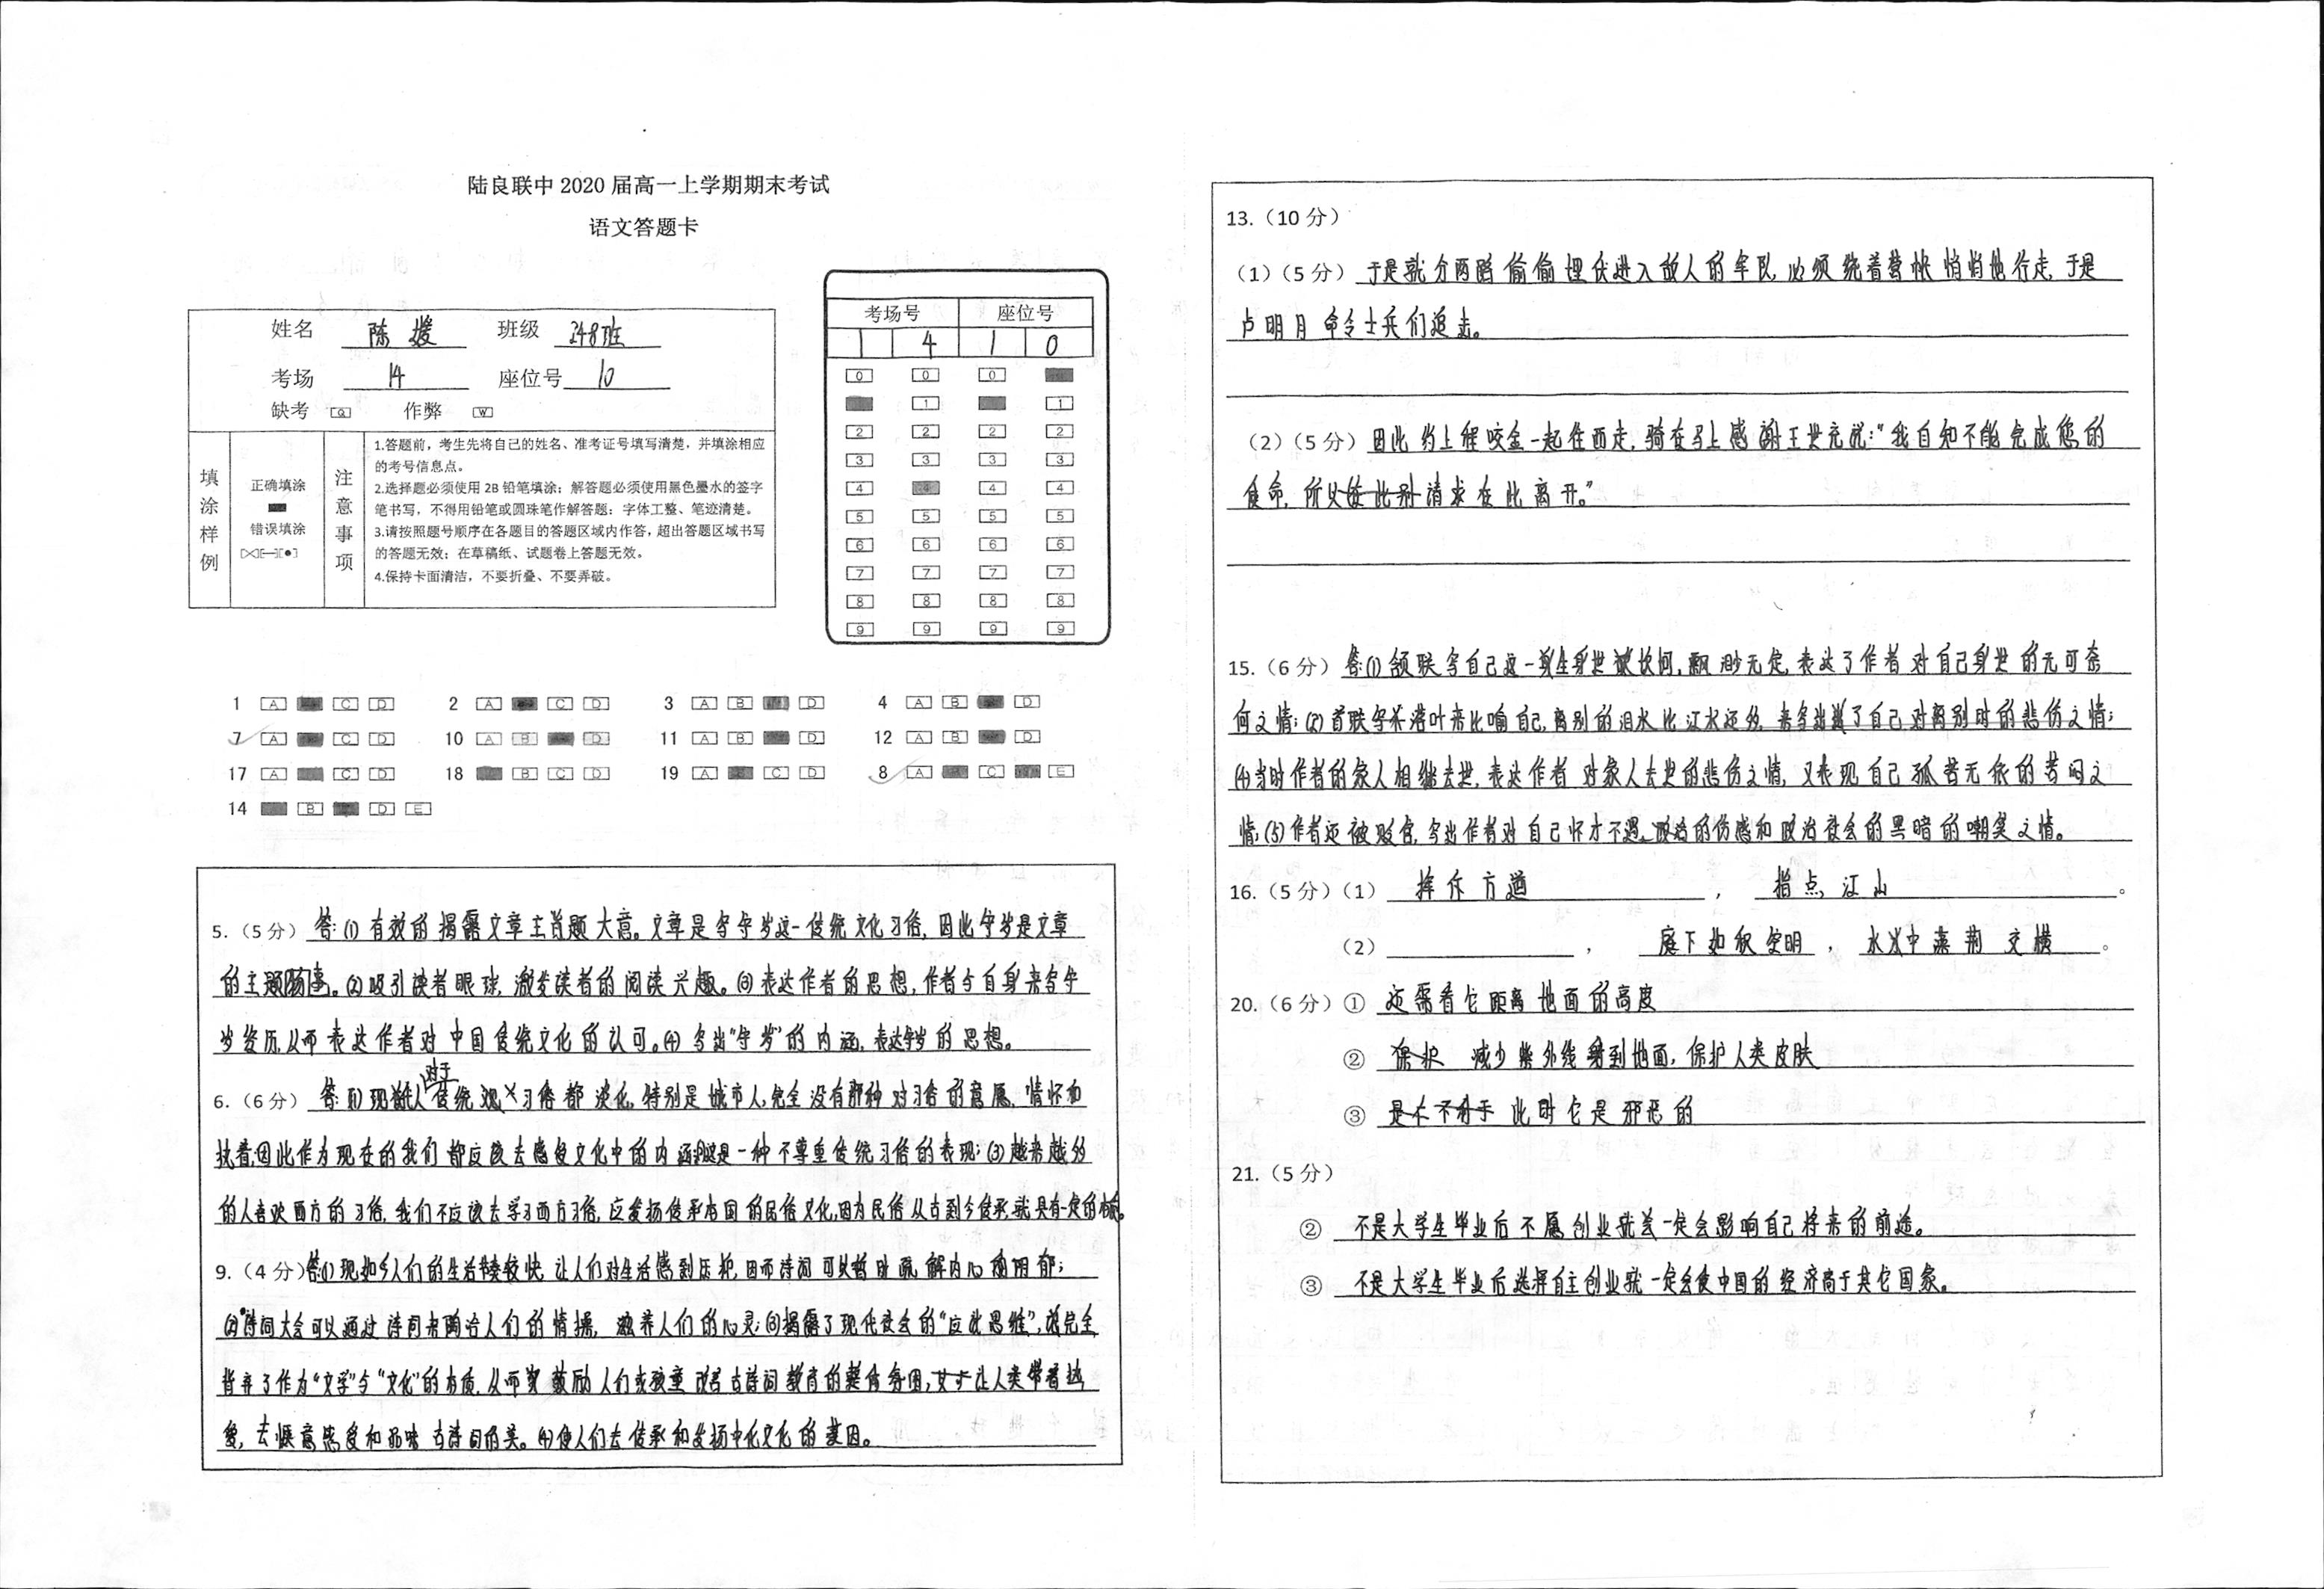 陆良联中 2020 届高一上学期期末考试
语文答题卡
姓名 陈媛 班级 248班
考场 14 座位号 10
缺考 [Q] 作弊 [W]
填涂样例
正确填涂
错误填涂
注意事项
1.答题前，考生先将自己的姓名、准考证号填写清楚，并填涂相应
的考号信息点。
2.选择题必须使用 2B 铅笔填涂；解答题必须使用黑色墨水的签字
笔书写，不得用铅笔或圆珠笔作解答题；字体工整、笔迹清楚。
3.请按照题号顺序在各题目的答题区域内作答，超出答题区域书写
的答题无效；在草稿纸、试题卷上答题无效。
4.保持卡面清洁，不要折叠、不要弄破。
考场号 座位号
1 4 1 0
[0] [0] [0]
[1] [1]
[2] [2] [2] [2]
[3] [3] [3] [3]
[4] [4] [4] [4]
[5] [5] [5] [5]
[6] [6] [6] [6]
[7] [7] [7] [7]
[8] [8] [8] [8]
[9] [9] [9] [9]
1 [A] [C] [D] 2 [A] [C] [D] 3 [A] [B] [D] 4 [A] [B] [D]
7 [A] [C] [D] 10 [A] [B] [D] 11 [A] [B] [D] 12 [A] [B] [D]
17 [A] [C] [D] 18 [B] [C] [D] 19 [A] [C] [D] 8 [A] [C] [E]
14 [B] [D] [E]
5.（5 分）答：(1) 有效的揭露文章主题大意。文章是写守岁这一传统文化习俗，因此守岁是文章
的主题。(2)吸引读者眼球，激发读者的阅读兴趣。(3)表达作者的思想，作者与自身来写守
岁经历，从而表达作者对中国传统文化的认可。(4)写出“守岁”的内涵，表达守岁的思想。
6.（6 分）答：(1)现代人对于传统习俗都淡化，特别是城市人，完全没有那种对习俗的意愿，情怀和
执着，因此作为现在的我们都应该去感受文化中的内涵，这是一种不尊重传统习俗的表现；(3)越来越多
的人喜欢西方的习俗，我们不应该去学习西方习俗，应发扬传承本国的民俗文化，因为民俗从古到今传承就具有一定的
9.（4 分）答：(1)现如今人们的生活节奏较快，让人们对生活感到压抑，因而诗词可以暂时疏解内心的阴郁；
(2)诗词大会可以通过诗词来陶冶人们的情操，滋养人们的心灵；(3)揭露了现代社会的“应试思维”，完全
背弃了作为“文学”与“文化”的本质，从而鼓励人们或孩童改善古诗词教育的整体氛围，让人类带着热
爱，去惬意感受和品味古诗词的美。(4)使人们去传承和发扬中化文化的基因。
13.（10 分）
（1）（5 分）于是就分两路偷偷埋伏进入敌人的军队，必须绕着营帐悄悄地行走，于是
卢明月命令士兵们追击。
（2）（5 分）因此约上程咬金一起往西走，骑在马上感谢王世充说：“我自知不能完成您的
使命，所以请求在此离开。”
15.（6 分）答：(1)颔联写自己这一生身世坎坷，飘渺无定，表达了作者对自己身世的无可奈
何之情；(2)首联写以落叶来比喻自己，离别的泪水比江水还多，来写出了自己对离别时的悲伤之情；
(4)当时作者的家人相继去世，表达作者对家人去世的悲伤之情，又表现自己孤苦无依的苦闷之
情；(5)作者还被贬官，写出作者对自己怀才不遇、政治的伤感和政治社会的黑暗的嘲笑之情。
16.（5 分）（1）挥斥方遒，指点江山。
（2），庭下如积空明，水中藻荇交横。
20.（6 分）① 还需看它距离地面的高度
② 减少紫外线射到地面，保护人类皮肤
③ 此时它是邪恶的
21.（5 分）
② 不是大学生毕业后不愿创业就一定会影响自己将来的前途。
③ 不是大学生毕业后选择自主创业就一定会使中国的经济高于其它国家。